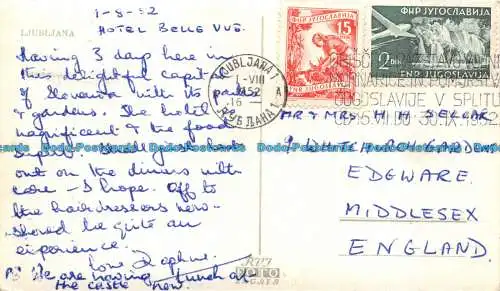 1-8-52
HOTEL BELLE VUE.
LJUBLJANA
Having 3 days here in
this delightful capital
of Slovenia with its parks
& gardens. The hotel
magnificent & the food
superb.
out on the dinners with
care - I hope. Off to
the hairdressers now -
should be quite an
experience.
love Daphne.
P.S. We are having lunch at
the castle now.
ФНР ЈУГОСЛАВИЈА
15
FNR JUGOSLAVIJA
ФНР ЈУГОСЛАВИЈА
2 DIN
FNR JUGOSLAVIJA
LJUBLJANA 1
1-VIII
1952
16
A
ЉУБЉАНА 1
MORNARICE IN POMORSTVA
JUGOSLAVIJE V SPLITU
OD 15.VII DO 30.IX.1952
MR & MRS H. H. SELLAR
9 WHITCHURCH GARDENS
EDGWARE
MIDDLESEX
ENGLAND.
FOTO
ZAGREB